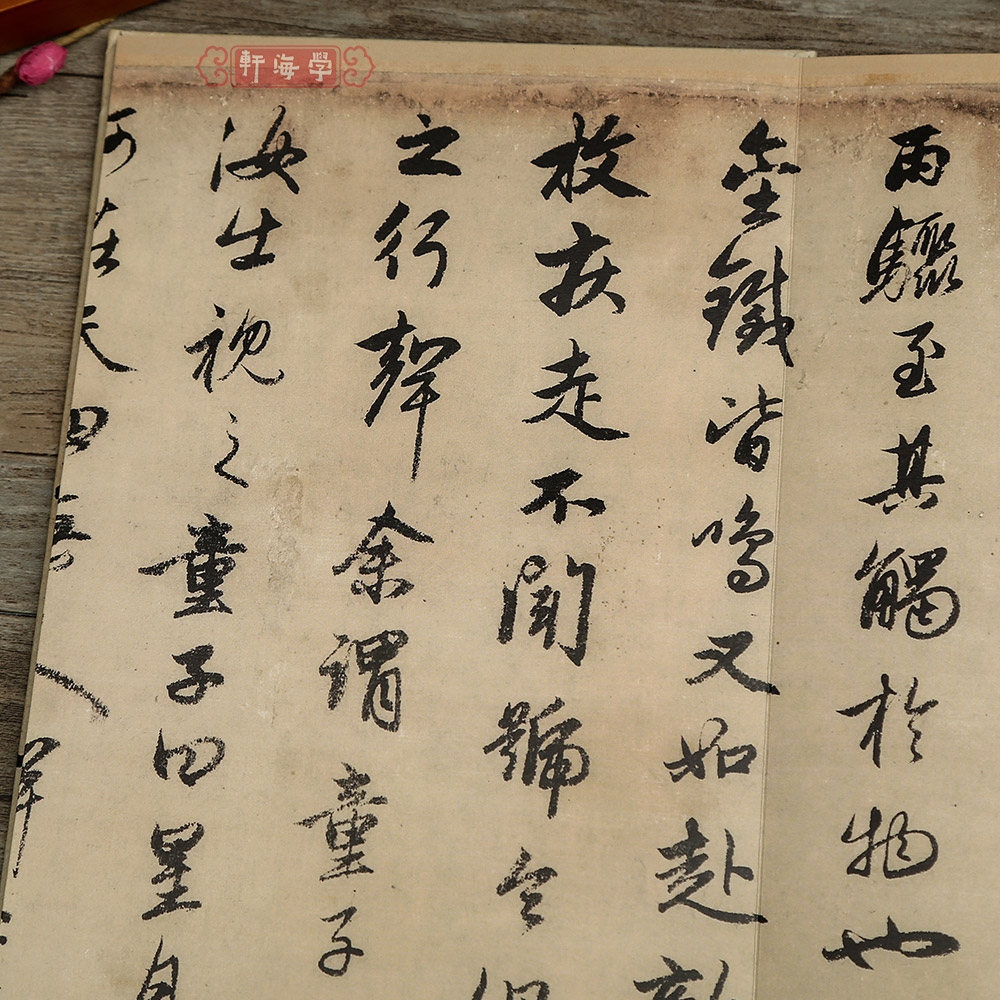 學海軒
雨驟至其觸於物也
金鐵皆鳴又如赴敵
枚疾走不聞號令但
之行聲余謂童子
汝出視之童子曰星月
在天四